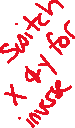 Switch
x & y for
inverse